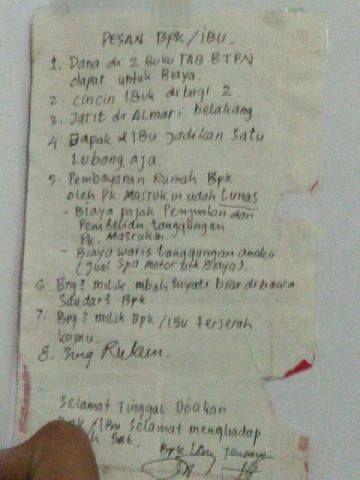 PESAN BPK/IBU.
1. Dana di 2 Buku TAB BTPN
dapat untuk Biaya.
2. Cincin IBuk dibagi 2
3. Jarit di Almari belakang
4 Bapak & IBu Jadikan Satu
Lubang aja.
5. Pembayaran Rumah Bpk
oleh Pk. Masrukin udah Lunas
- Biaya pajak Penjualan dan
Pembelian tanggungan
Pk. Masrukin.
- Biaya waris tanggungan anaku
(Jual Spd motor utk Biaya).
6 Brg2 milik mbah Suyati biar dibawa
Saudara Bpk
7. Brg2 milik Bpk/IBu terserah
kamu.
8. Sing Rukun.
Selamat Tinggal Doakan
/IBu Selamat menghadap
Bpk IBu